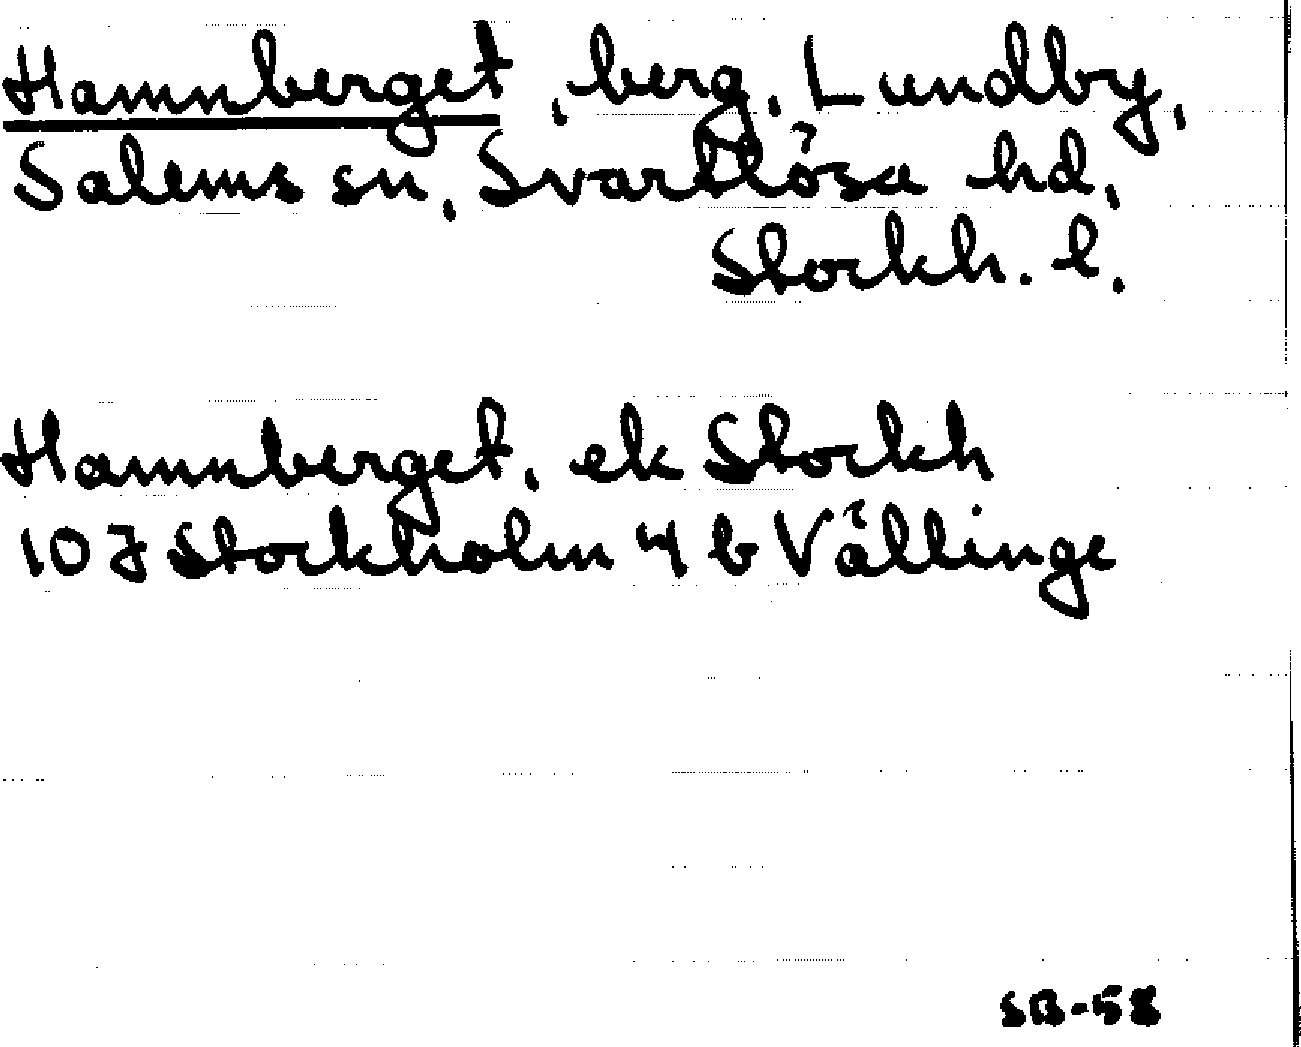 Hamnberget, berg, Lundby,
Salems sn, Svartlösa hd,
Stockh. l.
Hamnberget, ek Stockh
10J Stockholm 4 b Vällinge
SB-58